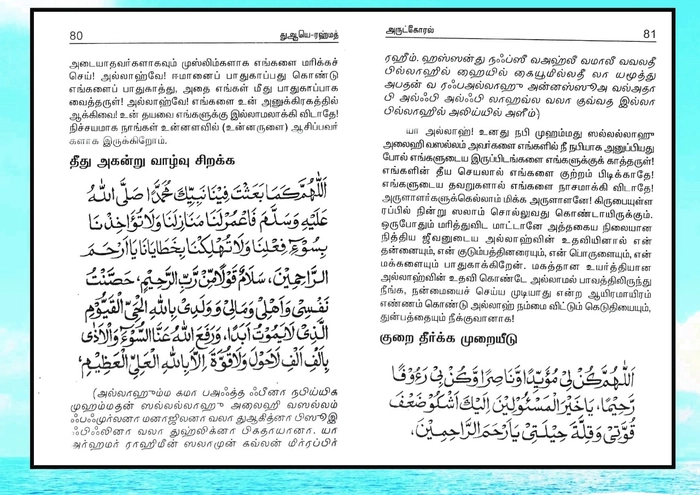 80
துஆயெ-ரஹ்மத்
அடையாதவர்களாகவும் முஸ்லிம்களாக எங்களை மரிக்கச்
செய்! அல்லாஹ்வே! ஈமானைப் பாதுகாப்பது கொண்டு
எங்களைப் பாதுகாத்து, அதை எங்கள் மீது பாதுகாப்பாக
வைத்தருள்! அல்லாஹ்வே! எங்களை உன் அனுக்கிரகத்தில்
ஆக்கிவை! உன் தயவை எங்களுக்கு இல்லாமலாக்கி விடாதே!
நிச்சயமாக நாங்கள் உன்னளவில் (உன்னருளை) ஆசிப்பவர்
களாக இருக்கிறோம்.
தீது அகன்று வாழ்வு சிறக்க
اَللّٰهُمَّ كَمَا بَعَثْتَ فِيْنَا نَبِيَّكَ مُحَمَّدًا صَلَّى اللّٰهُ
عَلَيْهِ وَسَلَّمَ فَاعْمُرْلَنَا مَنَازِلَنَا وَلَا تُؤَاخِذْنَا
بِسُوْٓءِ فِعْلِنَا وَلَا تُهْلِكْنَا بِخَطَايَانَا يَا اَرْحَمَ
الرَّاحِمِيْنَ، سَلَامٌ قَوْلًا مِّنْ رَّبٍّ الرَّحِيْمِ، حَصَّنْتُ
نَفْسِيْ وَاَهْلِيْ وَمَالِيْ وَوَلَدِيْ بِاللّٰهِ الْحَيِّ الْقَيُّوْمِ
الَّذِيْ لَا يَمُوْتُ اَبَدًا، وَرَفَعَ اللّٰهُ عَنَّا السُّوْٓءَ وَالْاَذٰى
بِاَلْفِ اَلْفِ لَاحَوْلَ وَلَا قُوَّةَ اِلَّا بِاللّٰهِ الْعَلِيِّ الْعَظِيْمِ،
(அல்லாஹும்ம கமா பஅஃத்த ஃபீனா நபிய்யிக
முஹம்மதன் ஸல்லல்லாஹு அலைஹி வஸல்லம்
ஃபஃமுர்லனா மனாஜிலனா வலா துஆகித்னா பிஸூஇ
ஃபிஃலினா வலா துஹ்லிக்னா பிகதாயானா. யா
அர்ஹமர் ராஹிமீன் ஸலாமுன் கவ்லன் மிர்ரப்பிர்
அருட்கோரல்
81
ரஹீம். ஹஸ்ஸன்து நஃப்ஸீ வஅஹ்லீ வமாலீ வவலதீ
பில்லாஹில் ஹையில் கையூமில்லதீ லா யமூத்து
அபதன் வ ரஃபஅல்லாஹு அன்னஸ்ஸூஅ வல்அதா
பி அல்ஃபி அல்ஃபி லாஹவ்ல வலா குவ்வத இல்லா
பில்லாஹில் அலிய்யில் அளீம்)
யா அல்லாஹ்! உனது நபி முஹம்மது ஸல்லல்லாஹு
அலைஹி வஸல்லம் அவர்களை எங்களில் நீ நபியாக அனுப்பியது
போல் எங்களுடைய இருப்பிடங்களை எங்களுக்குக் காத்தருள்!
எங்களின் தீய செயலால் எங்களை குற்றம் பிடிக்காதே!
எங்களுடைய தவறுகளால் எங்களை நாசமாக்கி விடாதே!
அருளாளர்களுக்கெல்லாம் மிக்க அருளாளனே! கிருபையுள்ள
ரப்பில் நின்று ஸலாம் சொல்லுவது கொண்டாயிருக்கும்.
ஒருபோதும் மரித்துவிட மாட்டானே அத்தகைய நிலையான
நித்திய ஜீவனுடைய அல்லாஹ்வின் உதவியினால் என்
தன்னையும், என் குடும்பத்தினரையும், என் பொருளையும், என்
மக்களையும் பாதுகாக்கிறேன். மகத்தான உயர்த்தியான
அல்லாஹ்வின் உதவி கொண்டே அல்லாமல் பாவத்திலிருந்து
நீங்க, நன்மையைச் செய்ய முடியாது என்ற ஆயிரமாயிரம்
எண்ணம் கொண்டு அல்லாஹ் நம்மை விட்டும் கெடுதியையும்,
துன்பத்தையும் நீக்குவானாக!
குறை தீர்க்க முறையீடு
اَللّٰهُمَّ كُنْ لِيْ مُؤَيِّدًا وَّنَاصِرًا وَّكُنْ بِيْ رَءُوْفًا
رَّحِيْمًا، يَاخَيْرَ الْمَسْئُوْلِيْنَ اِلَيْكَ اَشْكُوْ ضَعْفَ
قُوَّتِيْ وَقِلَّةَ حِيْلَتِيْ يَا اَرْحَمَ الرَّاحِمِيْنَ،